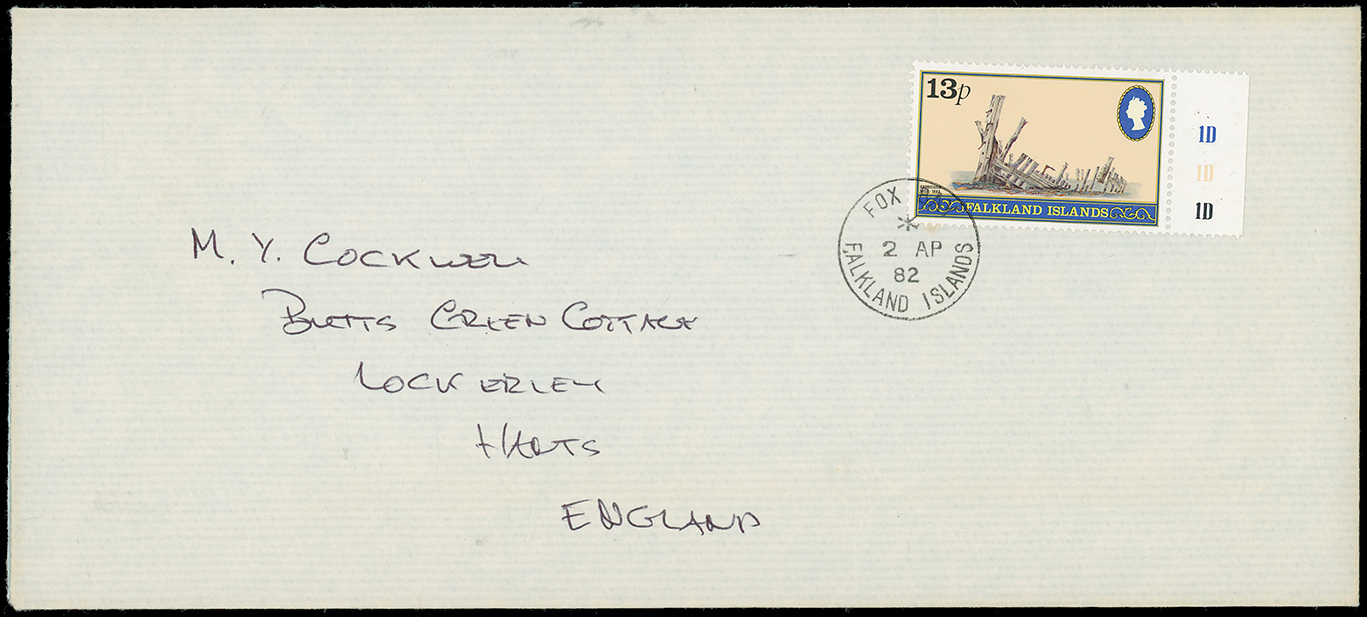 13p
1D
1D
1D
FALKLAND ISLANDS
FOX
2 AP
82
FALKLAND ISLANDS
M. Y. COCKWELL
BUTTS GREEN COTTAGE
LOCKERLEY
HANTS
ENGLAND